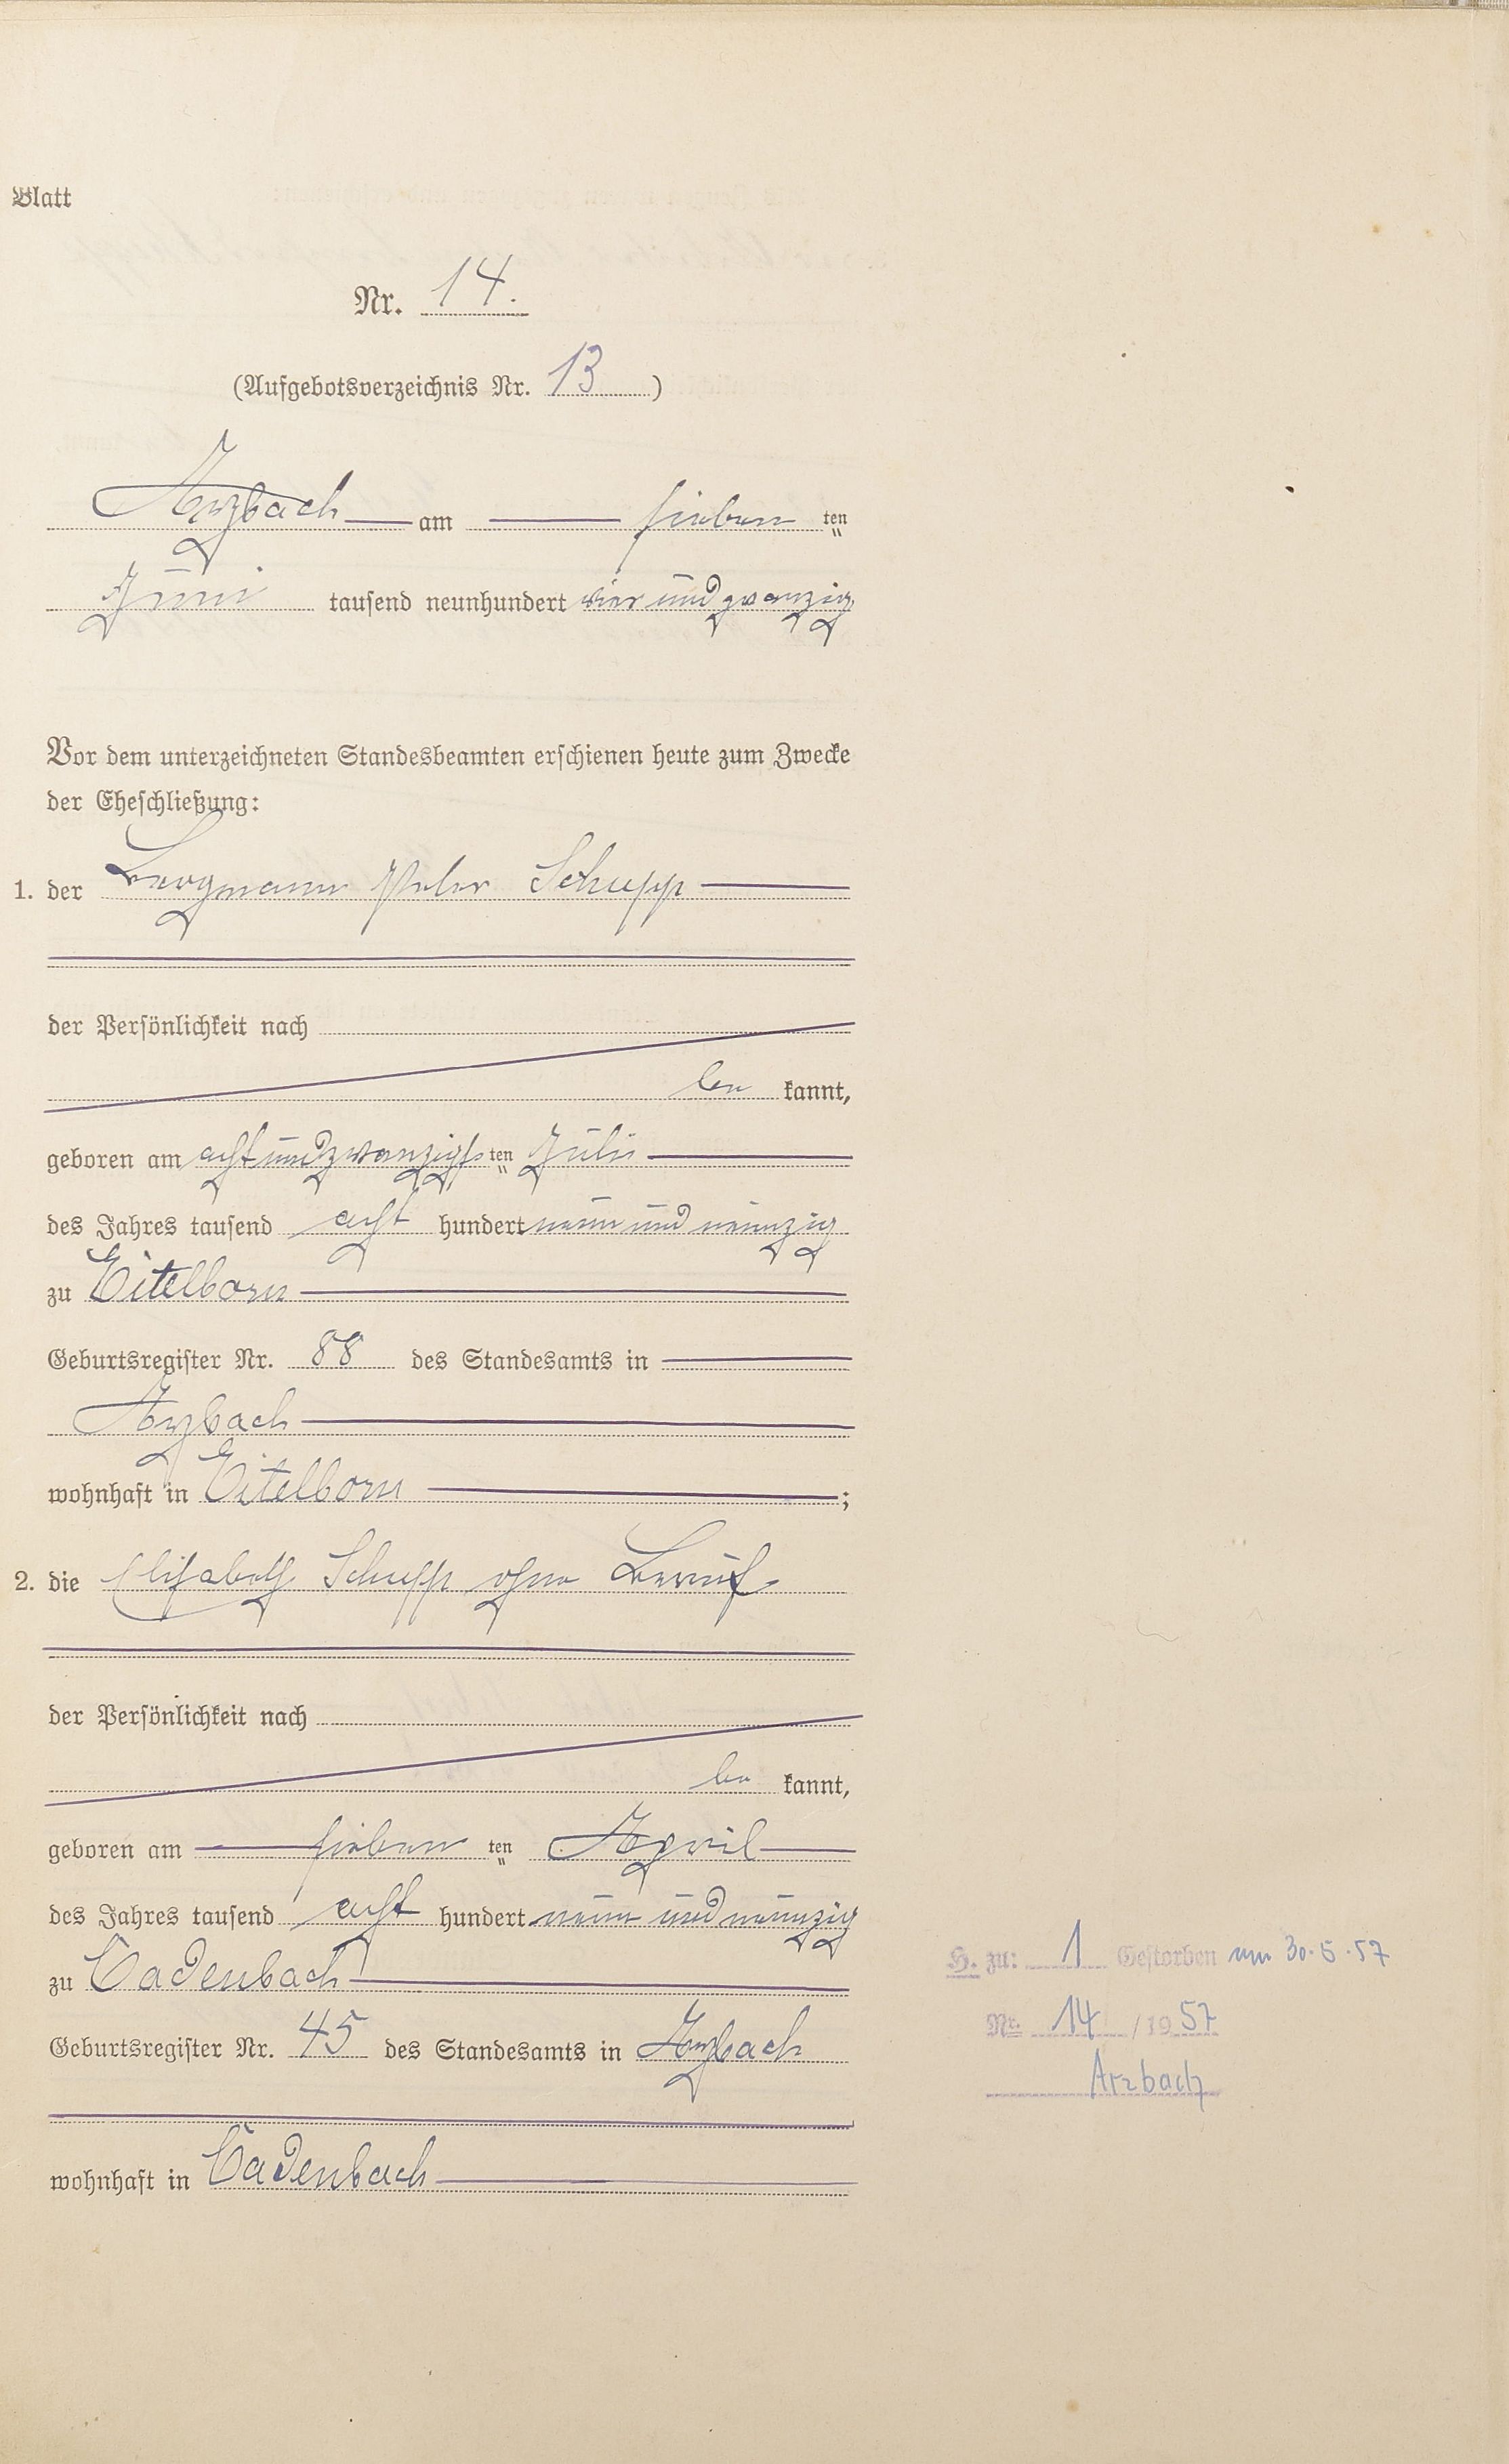 Blatt
Nr. 14.
(Aufgebotsverzeichnis Nr. 13)
Arzbach am sieben ten
Juni tausend neunhundert vier und zwanzig
Vor dem unterzeichneten Standesbeamten erschienen heute zum Zwecke
der Eheschließung:
1. der Bergmann Peter Schupp
der Persönlichkeit nach
be kannt,
geboren am acht und zwanzigs ten Juli
des Jahres tausend acht hundert neun und neunzig
zu Eitelborn
Geburtsregister Nr. 88 des Standesamts in
Arzbach
wohnhaft in Eitelborn ;
2. die Elisabeth Schupp ohne Beruf
der Persönlichkeit nach
be kannt,
geboren am sieben ten April
des Jahres tausend acht hundert neun und neunzig
zu Cadenbach
Geburtsregister Nr. 45 des Standesamts in Arzbach
wohnhaft in Cadenbach
H. zu: 1 Gestorben am 30.5.57
Nr. 14 / 19 57
Arzbach